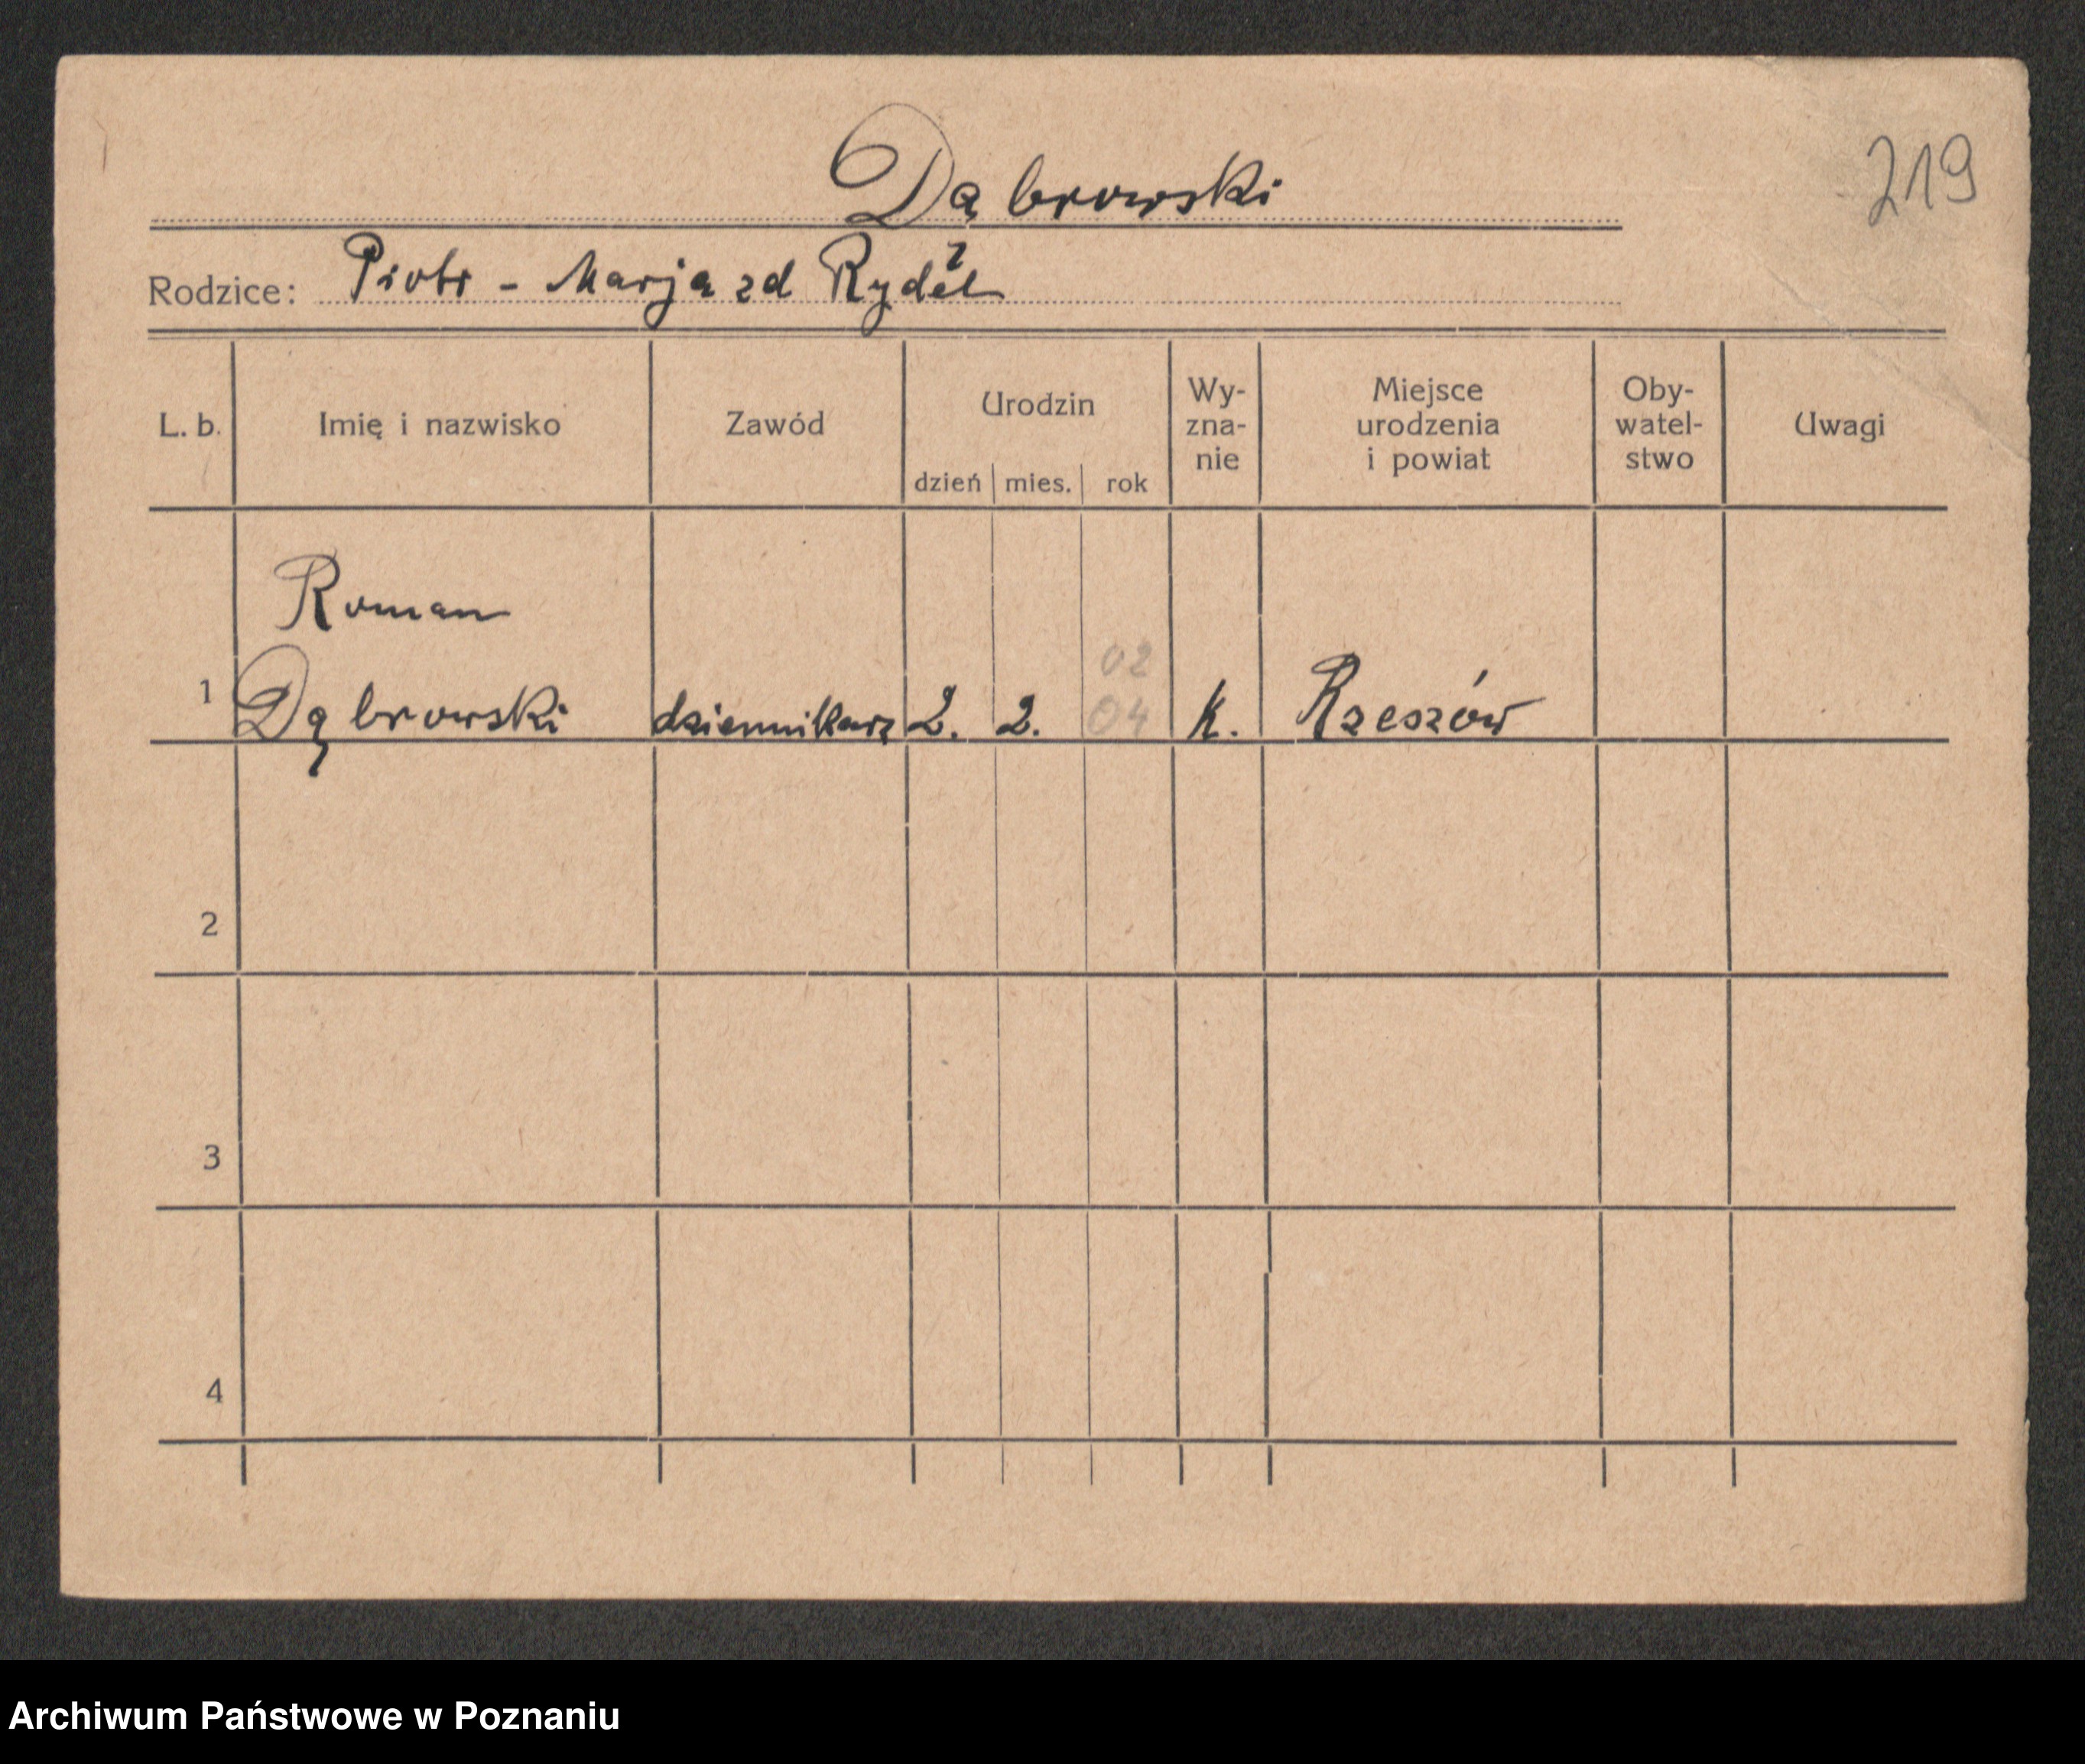 219
Dąbrowski
Rodzice: Piotr - Marja zd
L. b. Imię i nazwisko Zawód Urodzin dzień mies. rok Wy- zna- nie Miejsce urodzenia i powiat Oby- watel- stwo Uwagi
Roman
02
1 Dąbrowski dziennikarz 2. 2. 04 k. Rzeszów
2
3
4
Archiwum Państwowe w Poznaniu